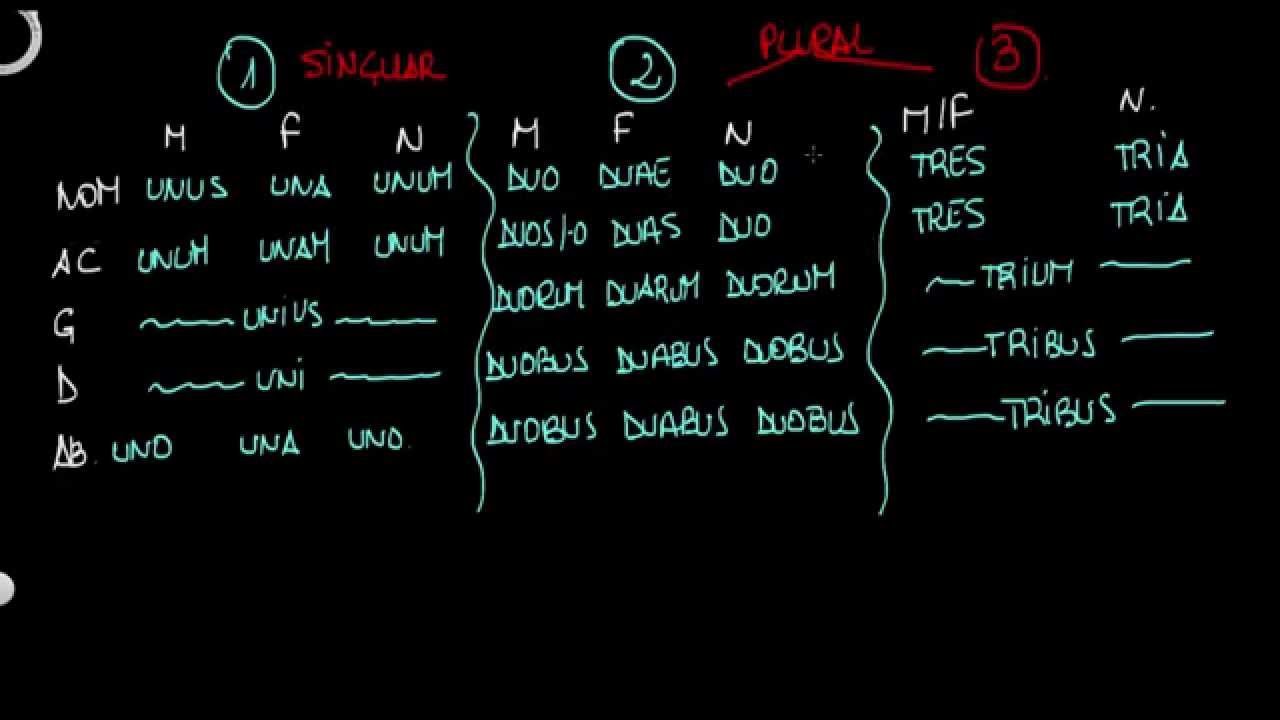 1 SINGULAR 2 PLURAL 3
M F N M F N M/F N.
NOM UNUS UNA UNUM DUO DUAE DUO TRES TRIA
AC UNUM UNAM UNUM DUOS/-O DUAS DUO TRES TRIA
G UNIUS DUORUM DUARUM DUORUM TRIUM
D UNI DUOBUS DUABUS DUOBUS TRIBUS
AB. UNO UNA UNO. DUOBUS DUABUS DUOBUS TRIBUS